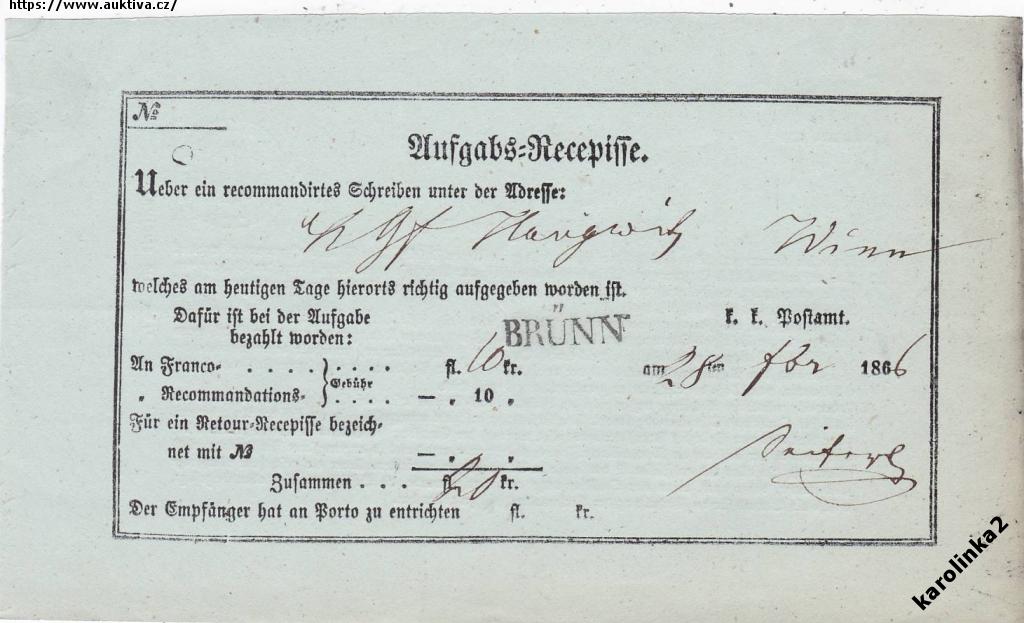 https://www.auktiva.cz/
№
Aufgabs-Recepisse.
Ueber ein recommandirtes Schreiben unter der Adresse:
Haugwitz Wien
welches am heutigen Tage hierorts richtig aufgegeben worden ist.
Dafür ist bei der Aufgabe
bezahlt worden:
BRÜNN
k. k. Postamt.
An Franco- . . . . . . . . fl. 10 kr.
am 28ten fbr 1866
„ Recommandations- . . . . — „ 10 „
Gebühr
Für ein Retour-Recepisse bezeich-
net mit № — „ „
Seiferth
Zusammen . . . fl. 20 kr.
Der Empfänger hat an Porto zu entrichten fl. kr.
karolinka2